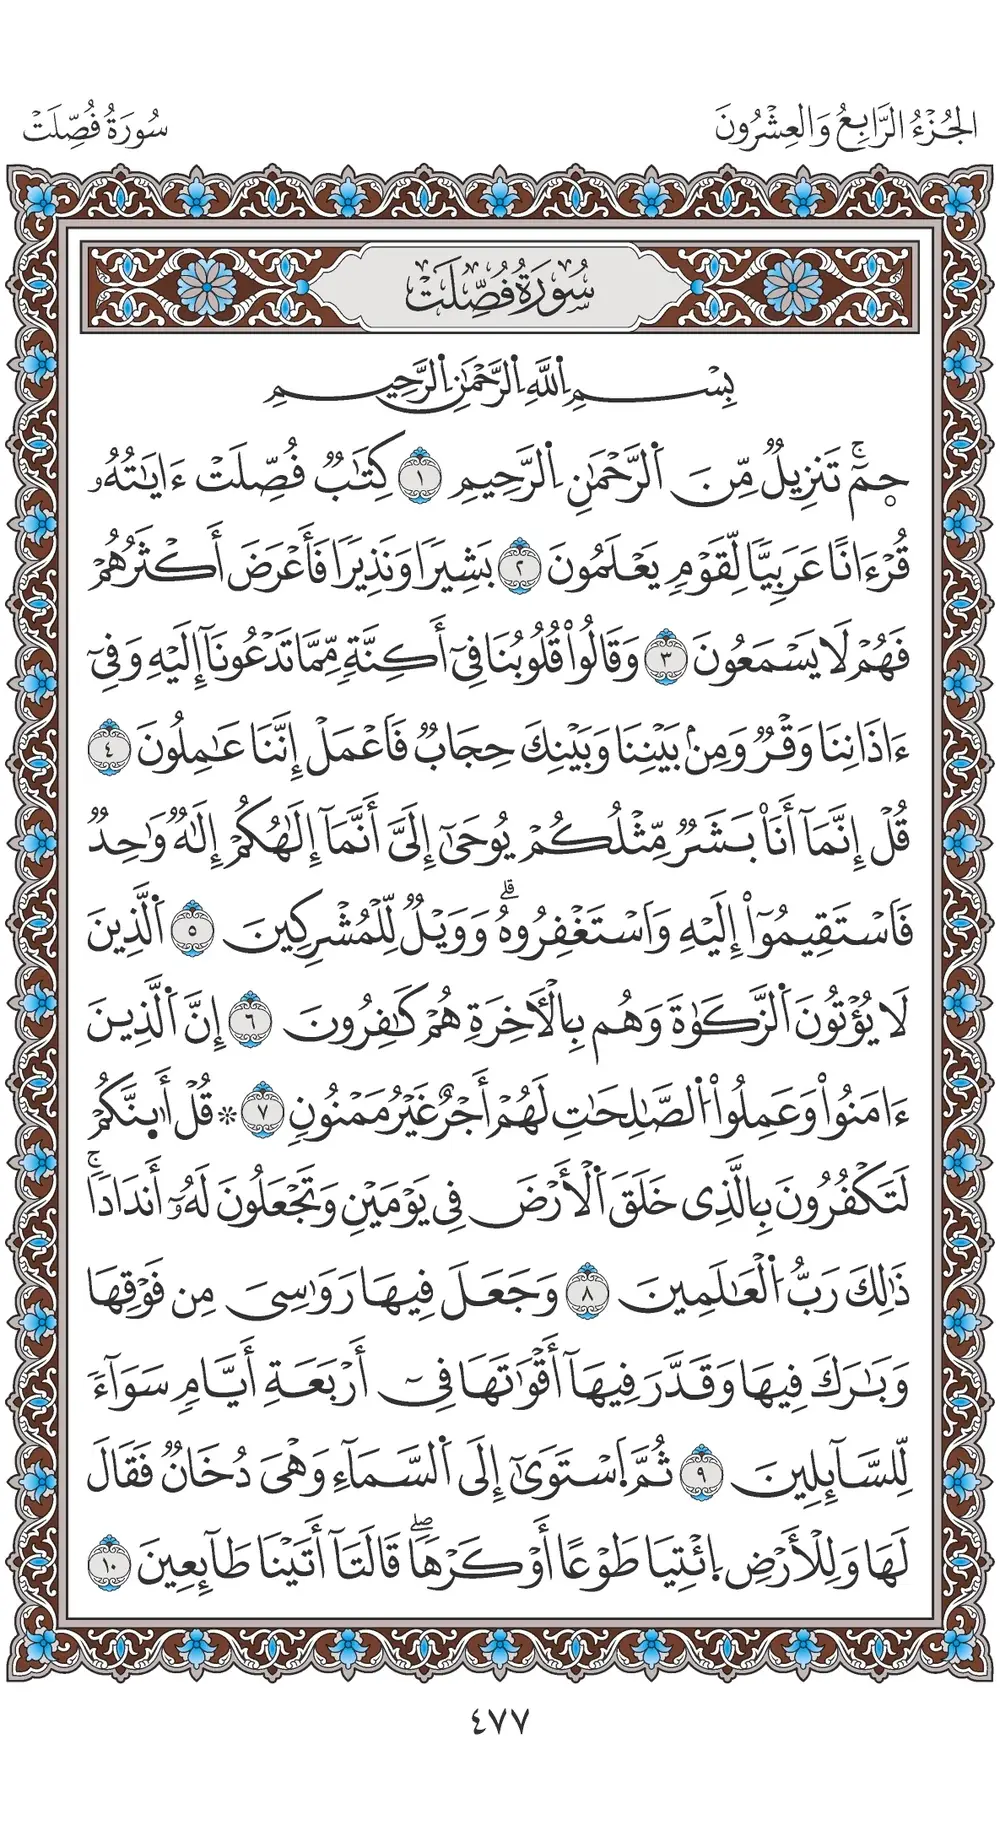 الجُزْءُ الرَّابِعُ وَالعِشْرُونَ
سُورَةُ فُصِّلَتْ
سُورَةُ فُصِّلَتْ
بِسْمِ اِ۬للَّهِ اِ۬لرَّحْمَٰنِ اِ۬لرَّحِيمِ
حٓمِٓۚ تَنزِيلٌ مِّنَ اَ۬لرَّحْمَٰنِ اِ۬لرَّحِيمِ ١ كِتَٰبٌ فُصِّلَتْ ءَايَٰتُهُۥ
قُرْءَانًا عَرَبِيّٗا لِّقَوْمٖ يَعْلَمُونَ ٢ بَشِيرٗا وَنَذِيرٗا فَأَعْرَضَ أَكْثَرُهُمْ
فَهُمْ لَا يَسْمَعُونَ ٣ وَقَالُواْ قُلُوبُنَا فِيٓ أَكِنَّةٖ مِّمَّا تَدْعُونَآ إِلَيْهِ وَفِيٓ
ءَاذَانِنَا وَقْرٞ وَمِنۢ بَيْنِنَا وَبَيْنِكَ حِجَابٞ فَاَعْمَلْ إِنَّنَا عَٰمِلُونَ ٤
قُلْ إِنَّمَآ أَنَا۠ بَشَرٞ مِّثْلُكُمْ يُوحَىٰٓ إِلَيَّ أَنَّمَآ إِلَٰهُكُمْ إِلَٰهٞ وَٰحِدٞ
فَاَسْتَقِيمُوٓاْ إِلَيْهِ وَاَسْتَغْفِرُوهُۗ وَوَيْلٞ لِّلْمُشْرِكِينَ ٥ اَ۬لَّذِينَ
لَا يُؤْتُونَ اَ۬لزَّكَوٰةَ وَهُم بِالْأٓخِرَةِ هُمْ كَٰفِرُونَ ٦ إِنَّ اَ۬لَّذِينَ
ءَامَنُواْ وَعَمِلُواْ اُ۬لصَّٰلِحَٰتِ لَهُمْ أَجْرٌ غَيْرُ مَمْنُونٖ ٧ ۞ قُلْ أَٰئ۪نَّكُمْ
لَتَكْفُرُونَ بِالَّذِي خَلَقَ اَ۬لْأَرْضَ فِي يَوْمَيْنِ وَتَجْعَلُونَ لَهُۥٓ أَندَادٗاۚ
ذَٰلِكَ رَبُّ اُ۬لْعَٰلَمِينَ ٨ وَجَعَلَ فِيهَا رَوَٰسِيَ مِن فَوْقِهَا
وَبَٰرَكَ فِيهَا وَقَدَّرَ فِيهَآ أَقْوَٰتَهَا فِيٓ أَرْبَعَةِ أَيَّامٖ سَوَآءٗ
لِّلسَّآئِلِينَ ٩ ثُمَّ اَ۪سْتَوَىٰٓ إِلَى اَ۬لسَّمَآءِ وَهْيَ دُخَانٞ فَقَالَ
لَهَا وَلِلْأَرْضِ اِ۪ئْتِيَا طَوْعًا أَوْ كَرْهٗاۖ قَالَتَآ أَتَيْنَا طَآئِعِينَ ١٠
٤٧٧